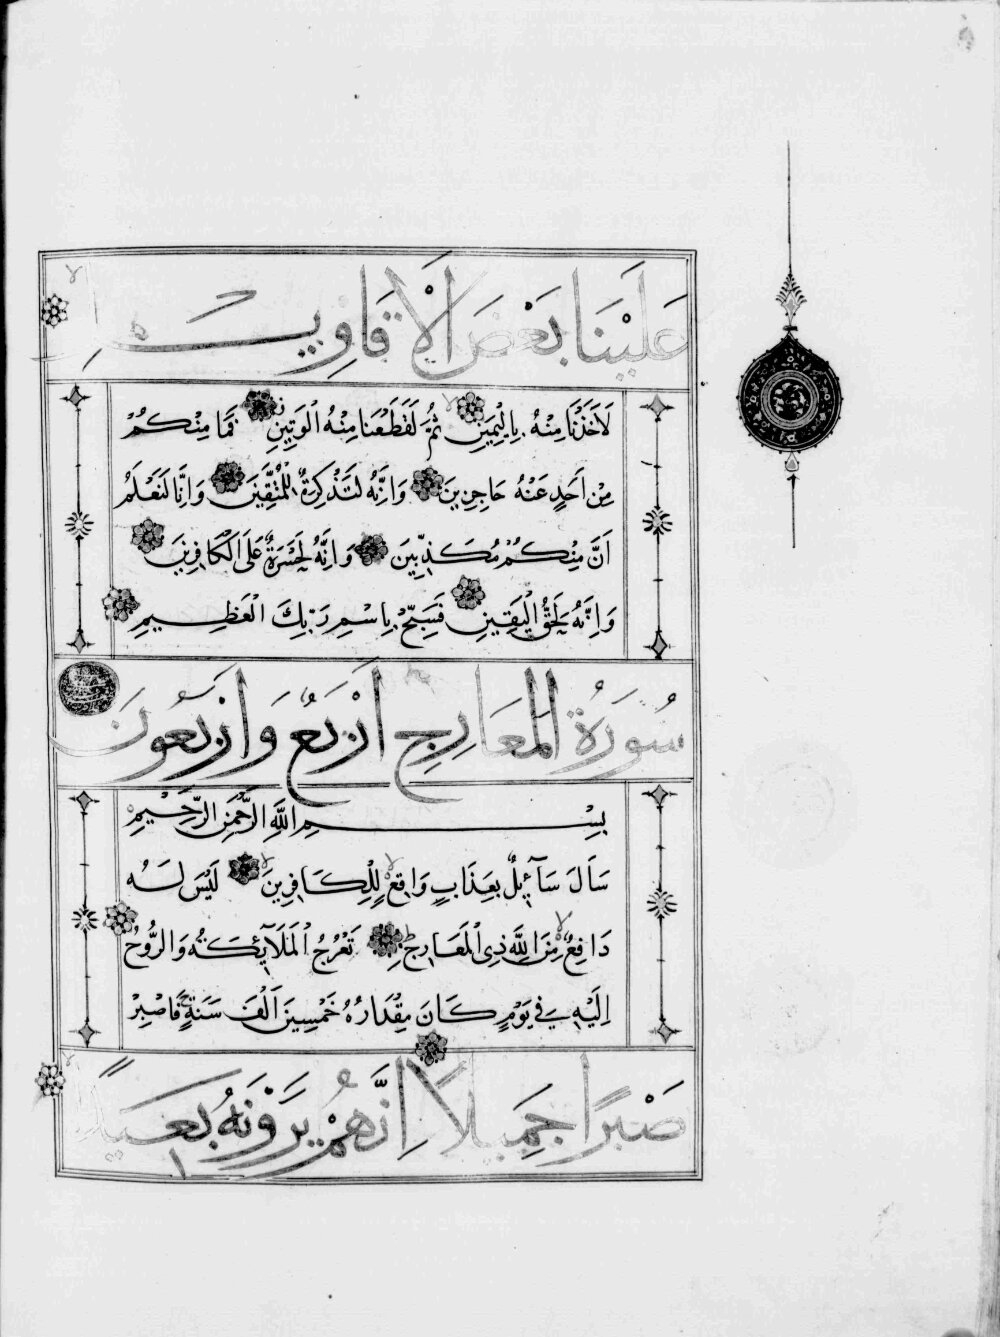 عَلَيْنَا بَعْضَ الْأَقَاوِيلِ
لَأَخَذْنَا مِنْهُ بِالْيَمِينِ ثُمَّ لَقَطَعْنَا مِنْهُ الْوَتِينَ فَمَا مِنْكُمْ
مِنْ أَحَدٍ عَنْهُ حَاجِزِينَ وَإِنَّهُ لَتَذْكِرَةٌ لِلْمُتَّقِينَ وَإِنَّا لَنَعْلَمُ
أَنَّ مِنْكُمْ مُكَذِّبِينَ وَإِنَّهُ لَحَسْرَةٌ عَلَى الْكَافِرِينَ
وَإِنَّهُ لَحَقُّ الْيَقِينِ فَسَبِّحْ بِاسْمِ رَبِّكَ الْعَظِيمِ
سُورَةُ الْمَعَارِجِ أَرْبَعٌ وَأَرْبَعُونَ
بِسْمِ اللَّهِ الرَّحْمَنِ الرَّحِيمِ
سَأَلَ سَآئِلٌ بِعَذَابٍ وَاقِعٍ لِلْكَافِرِينَ لَيْسَ لَهُ
دَافِعٌ مِنَ اللَّهِ ذِي الْمَعَارِجِ تَعْرُجُ الْمَلَآئِكَةُ وَالرُّوحُ
إِلَيْهِ فِي يَوْمٍ كَانَ مِقْدَارُهُ خَمْسِينَ أَلْفَ سَنَةٍ فَاصْبِرْ
صَبْرًا جَمِيلًا إِنَّهُمْ يَرَوْنَهُ بَعِيدًا